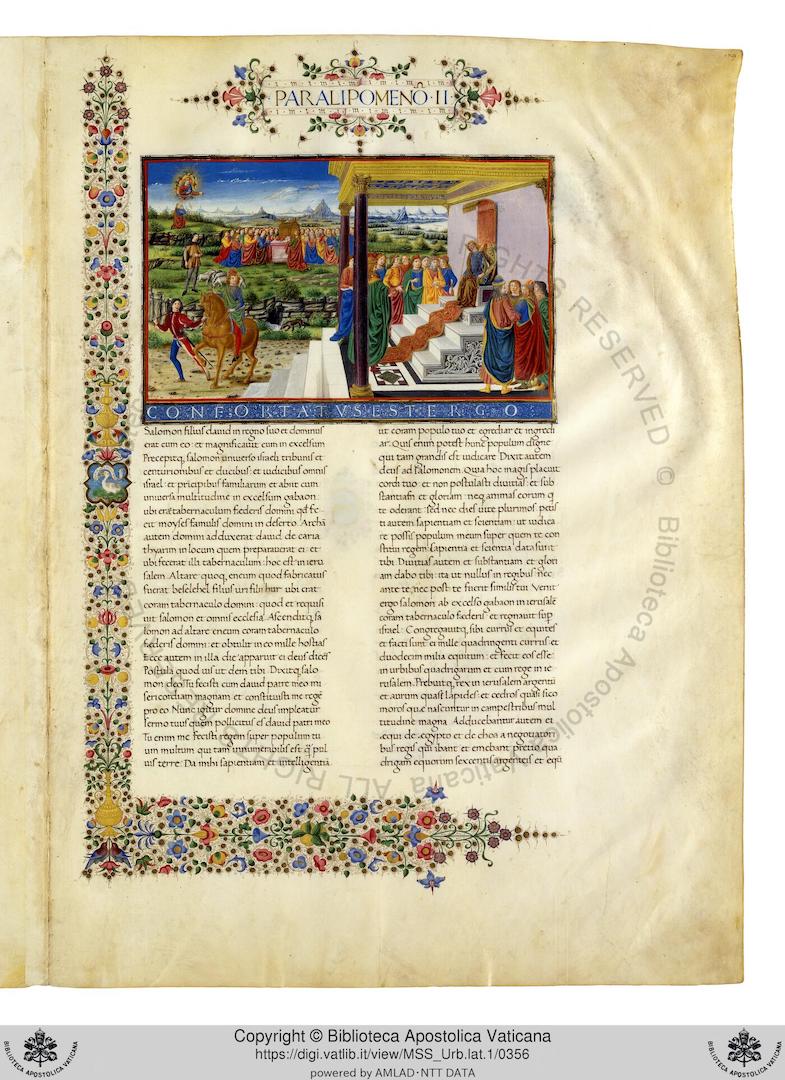 PARALIPOMENŌ · II
CONFORTATVS EST ERGO
Salomon filius dauid in regno suo et dominus
erat cum eo: et magnificauit eum in excelsum
Precepitq; salomon uniuerso israeli tribunis et
centurionibus et ducibus: et iudicibus omnis
israel: et pricipibus familiarum et abiit cum
uniuersa multitudine in excelsum gabaon:
ubi erat tabernaculum foederis domini qd fe
cit moyses famulus domini in deserto. Archā
autem domini adduxerat dauid de caria
thyarim in locum quem preparauerat ei: et
ubi fecerat illi tabernaculum: hoc est in ieru
salem. Altare quoq; eneum quod fabricatus
fuerat beselehel filius uri filii hur ubi erat
coram tabernaculo domini: quod et requisi
uit salomon et omnis ecclesia. Ascenditq; sa
lomon ad altare eneum coram tabernaculo
foederis domini: et obtulit in eo mille hostias
Ecce autem in illa die apparuit ei deus dicēs
Postula quod uis ut dem tibi. Dixitq; salo
mon deo. Tu fecisti cum dauid patre meo mi
sericordiam magnam: et constituisti me regē
pro eo. Nunc igitur domine deus impleatur
sermo tuus quem pollicitus es dauid patri meo
Tu enim me fecisti regem super populum tu
um multum qui tam innumerabilis est q̄ pul
uis terre. Da mihi sapientiam et intelligentiā
ut coram populo tuo et egrediar et ingredi
ar. Quis enim potest hunc populum digne
qui tam grandis est iudicare. Dixit autem
deus ad salomonem. Quia hoc magis placuit
cordi tuo: et non postulasti diuitias et sub
stantiam et gloriam: neq; animas eorum q̄
te oderant: sed nec dies uite plurimos: petis
ti autem sapientiam et scientiam: ut iudica
re possis populum meum super quem te con
stitui regem: sapientia et scientia data sunt
tibi. Diuitias autem et substantiam et glori
am dabo tibi: ita ut nullus in regibus nec
ante te nec post te fuerit similis tui. Venit
ergo salomon ab excelso gabaon in ierusalē
coram tabernaculo foederis: et regnauit sup
israel. Congregauitq; sibi currus et equites
et facti sunt ei mille quadringenti currus et
duodecim milia equitum: et fecit eos esse
in urbibus quadrigarum et cum rege in ie
rusalem. Prebuitq; rex in ierusalem argentū
et aurum quasi lapides: et cedros quasi sico
moros quae nascuntur in campestribus mul
titudine magna. Adducebantur autem ei
aequi de aegypto et de choa a negotiatori
bus regis qui ibant et emebant pretio qua
drigam equorum sexcentis argenteis et equ
RIGHTS RESERVED © Biblioteca Apostolica Vaticana ALL RIGHTS RESERVED
Copyright © Biblioteca Apostolica Vaticana
https://digi.vatlib.it/view/MSS_Urb.lat.1/0356
powered by AMLAD·NTT DATA
BIBLIOTECA APOSTOLICA VATICANA
BIBLIOTECA APOSTOLICA VATICANA